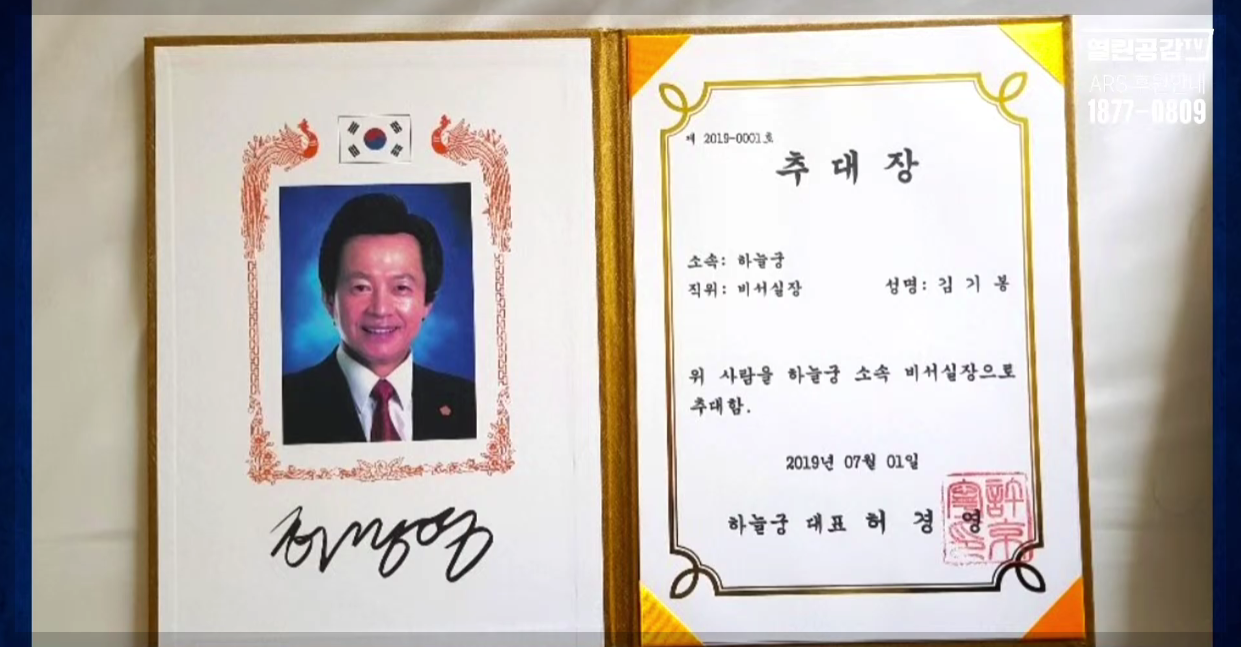 허경영
제 2019-0001호
추 대 장
소속: 하늘궁
직위: 비서실장 성명: 김 기 봉
위 사람을 하늘궁 소속 비서실장으로
추대함.
2019년 07월 01일
하늘궁 대표 허 경 영
열린공감TV
ARS 후원안내
1877-0809